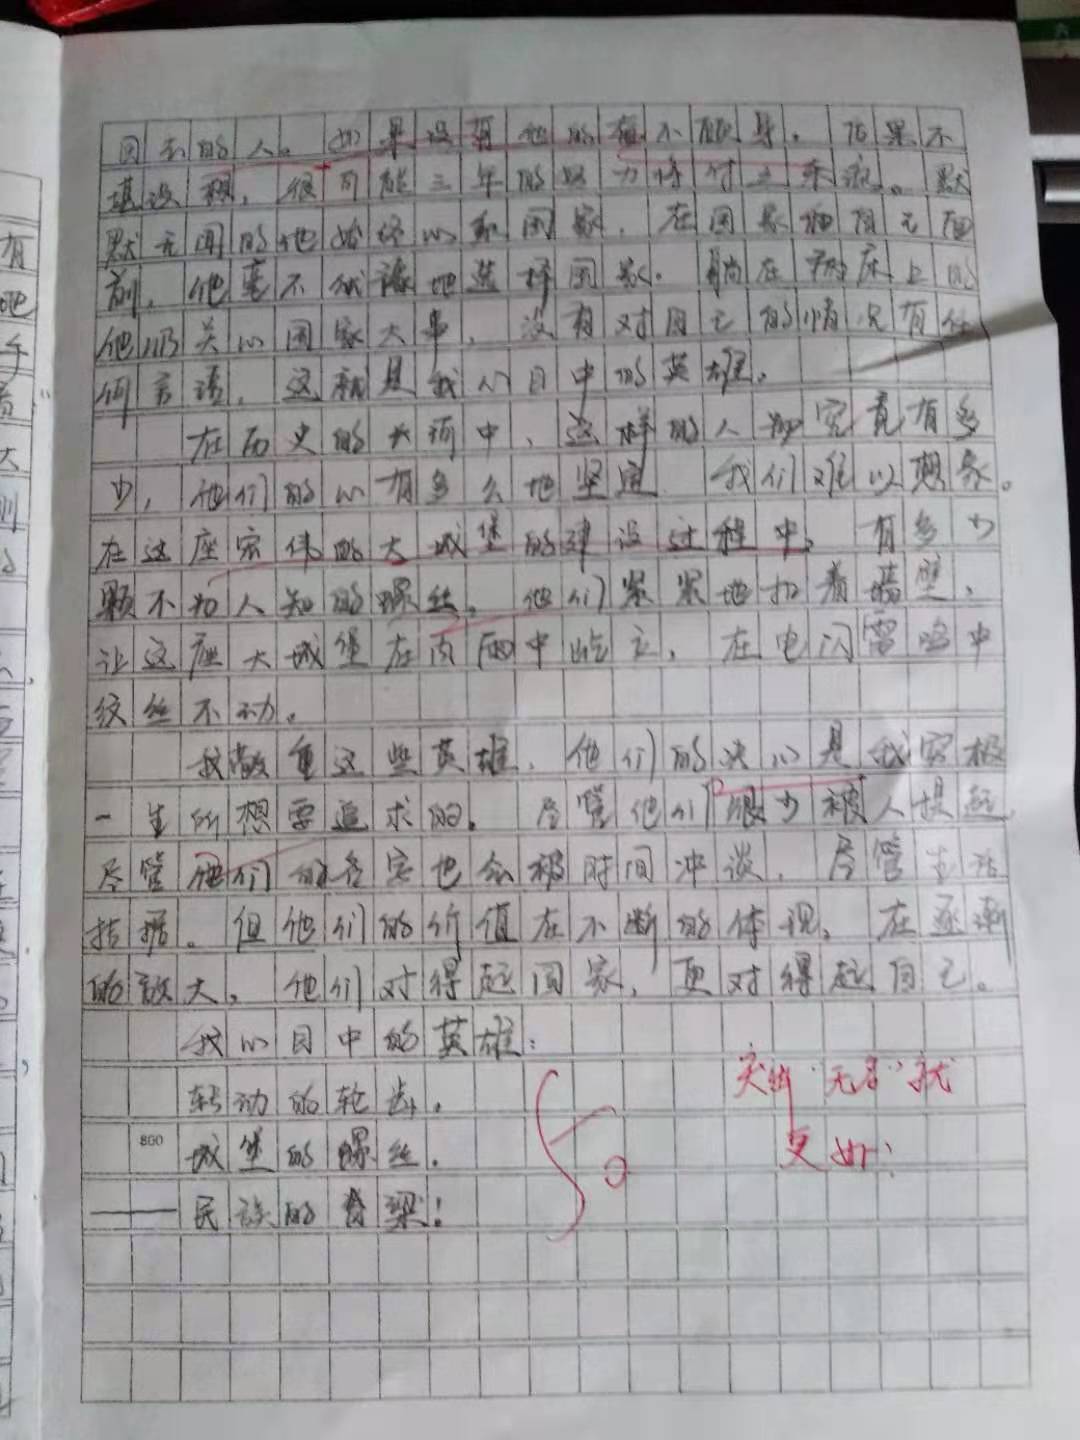 的人。如果没有他的奋不顾身,后果不
堪设想,很可能三年的努力将付之东流。默
默无闻的他始终心系国家,在国家和自己面
前,他毫不犹豫地选择国家。躺在病床上的
他仍关心国家大事,没有对自己的情况有任
何言语,这就是我心目中的英雄。
在历史的长河中,这样的人物究竟有多
少,他们的心有多么地坚定 我们难以想象。
在这座宏伟的大城堡的建设过程中,有多少
颗不为人知的螺丝,他们紧紧地扣着墙壁,
让这座大城堡在风雨中屹立,在电闪雷鸣中
纹丝不动。
我敬重这些英雄,他们的决心是我穷极
一生所想要追求的。尽管他们很少被人提起,
尽管他们的名字也会被时间冲淡,尽管生活
拮据。但他们的价值在不断的体现,在逐渐
的放大,他们对得起国家,更对得起自己。
我心目中的英雄:
转动的轮齿,
城堡的螺丝,
800
——民族的脊梁!
突出"无名"就
更好!
有
大